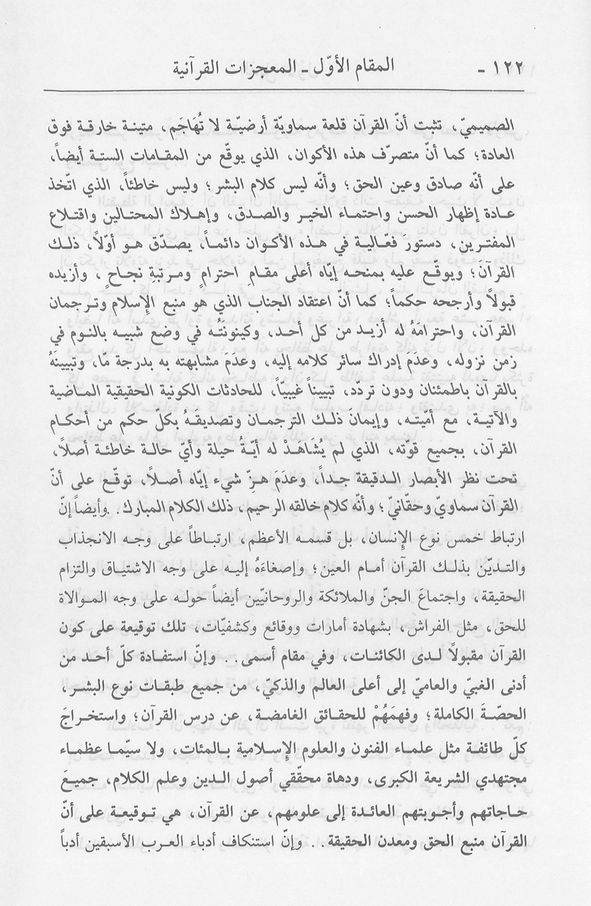 ١٢٢ - المقام الأوّل - المعجزات القرآنية
الصميميّ، تثبت أنّ القرآن قلعة سماويّة أرضيّة لا تُهَاجَم، متينة خارقة فوق
العادة؛ كما أنّ متصرّف هذه الأكوان، الذي يوقّع من المقامات الستة أيضاً،
على أنّه صادق وعين الحق؛ وأنه ليس كلام البشر؛ وليس خاطئاً، الذي اتّخذ
عـادة إظهار الحسن واحتماء الخير والصدق، وإهلاك المحتالين واقتلاع
المفترين، دستور فعّالية في هـذه الأكوان دائمـاً، يصدّق هو أوّلاً، ذلـك
القرآنَ؛ ويوقّع عليه بمنحـه إيّاه أعلى مقـامِ احترامٍ ومرتبةِ نجاحٍ، وأزيده
قبولاً وأرجحه حكماً؛ كما أنّ اعتقاد الجناب الذي هو منبع الإسلام وتـرجمان
القرآن، واحترامَهُ له أزيـد من كل أحـد، وكينونتُه في وضع شبيـه بالنوم في
زمن نزوله، وعدَمَ إدراك سائر كلامه إليه، وعدَمَ مشابهته به بدرجة مّا، وتبيينَهُ
بالقرآن باطمئنان ودون تردّد، تبييناً غيبيّاً، للحادثات الكونية الحقيقية المـاضية
والآتيـة، مع أمّيتـه، وإيمانَ ذلـك الترجمـان وتصديقَـهُ بكلّ حكم من أحكـام
القرآن، بجميع قوّته، الذي لم يُشَاهَدْ له أيّـةُ حيلة وأيّ حالـة خاطئـة أصلاً،
تحت نظر الأبصار الـدقيقة جـداً، وعدَمَ هـزّ شيء إيّاه أصلاً، توقّع على أنّ
القرآن سماويّ وحقّانيّ؛ وأنّه كلام خالقه الرحيم، ذلك الكلام المبارك. . وأيضاً إنّ
ارتباط خمس نوع الإنسان، بل قسمـه الأعظم، ارتبـاطـاً على وجـه الانجذاب
والتديّن بذلـك القرآن أمام العين؛ وإصغاءَهُ إليـه على وجه الاشتيـاق والتزام
الحقيقة، واجتماعَ الجنّ والملائكة والروحانيّين أيضاً حولـه على وجه المـوالاة
للحق، مثل الفراش، بشهادة أمارات ووقائع وكشفيّات، تلك توقيعة على كون
القرآن مقبولاً لـدى الكائنات، وفي مقام أسمى. . وإنّ استفـادة كلّ أحـد من
أدنى الغبيّ والعاميّ إلى أعلى العالم والذكيّ، من جميع طبقـات نوع البشـر،
الحصّـةَ الكاملة؛ وفهمَهُمْ للحقائق الغامضـة، عن درس القرآن؛ واستخـراجَ
كلّ طائفـة مثل علمـاء الفنون والعلوم الإسلامية بـالمئات، ولا سيّمـا عظمـاء
مجتهدي الشريعة الكبرى، ودهاة محقّقي أصول الـدين وعلم الكلام، جميعَ
حـاجاتهم وأجـوبتهم العائـدة إلى علومهم، عن القرآن، هي تـوقيعة على أنّ
القرآن منبع الحق ومعدن الحقيقة. . وإنّ استنكاف أدباء العرب الأسبقين أدباً